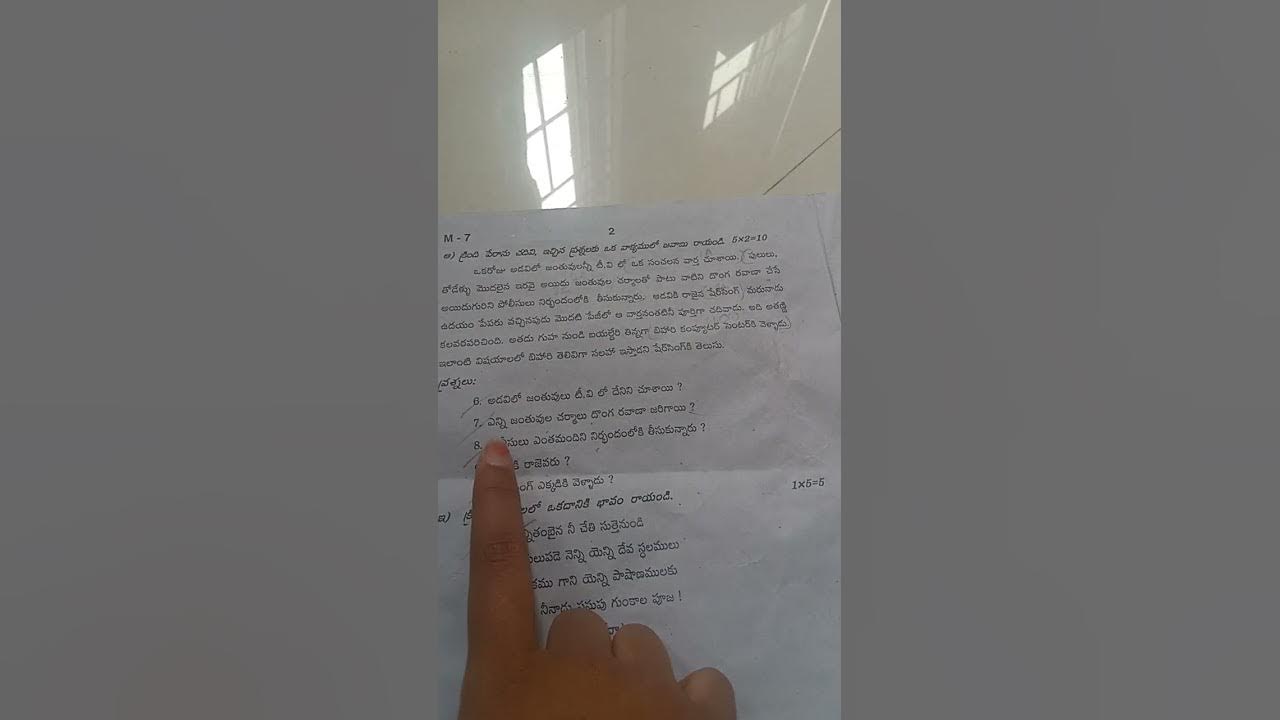 M - 7
2
అ) క్రింది పేరాను చదివి, ఇచ్చిన ప్రశ్నలకు ఒక వాక్యములో జవాబు రాయండి. 5×2=10
ఒకరోజు అడవిలో జంతువులన్నీ టీ.వి లో ఒక సంచలన వార్త చూశాయి. పులులు,
తోడేళ్ళు మొదలైన ఇరవై అయిదు జంతువుల చర్మాలతో పాటు వాటిని దొంగ రవాణా చేసే
అయిదుగురిని పోలీసులు నిర్బంధంలోకి తీసుకున్నారు. అడవికి రాజైన షేర్‌సింగ్ మరునాడు
ఉదయం పేపరు వచ్చినపుడు మొదటి పేజీలో ఆ వార్తనంతటినీ పూర్తిగా చదివాడు. అది అతణ్ణి
కలవరపరిచింది. అతడు గుహ నుండి బయల్దేరి తిన్నగా బిహారి కంప్యూటర్ సెంటర్‌కి వెళ్ళాడు
ఇలాంటి విషయాలలో బిహారి తెలివిగా సలహా ఇస్తాడని షేర్‌సింగ్‌కి తెలుసు.
ప్రశ్నలు:
6. అడవిలో జంతువులు టీ.వి లో దేనిని చూశాయి ?
7. ఎన్ని జంతువుల చర్మాలు దొంగ రవాణా జరిగాయి ?
8. ఎంతమందిని నిర్బంధంలోకి తీసుకున్నారు ?
రాజెవరు ?
ఎక్కడికి వెళ్ళాడు ?
ఇ) ఒకదానికి భావం రాయండి. 1×5=5
నీ చేతి సుత్తెనుండి
నెన్ని యెన్ని దేవ స్థలములు
గాని యెన్ని పాషాణములకు
పసుపు గుంకాల పూజ !